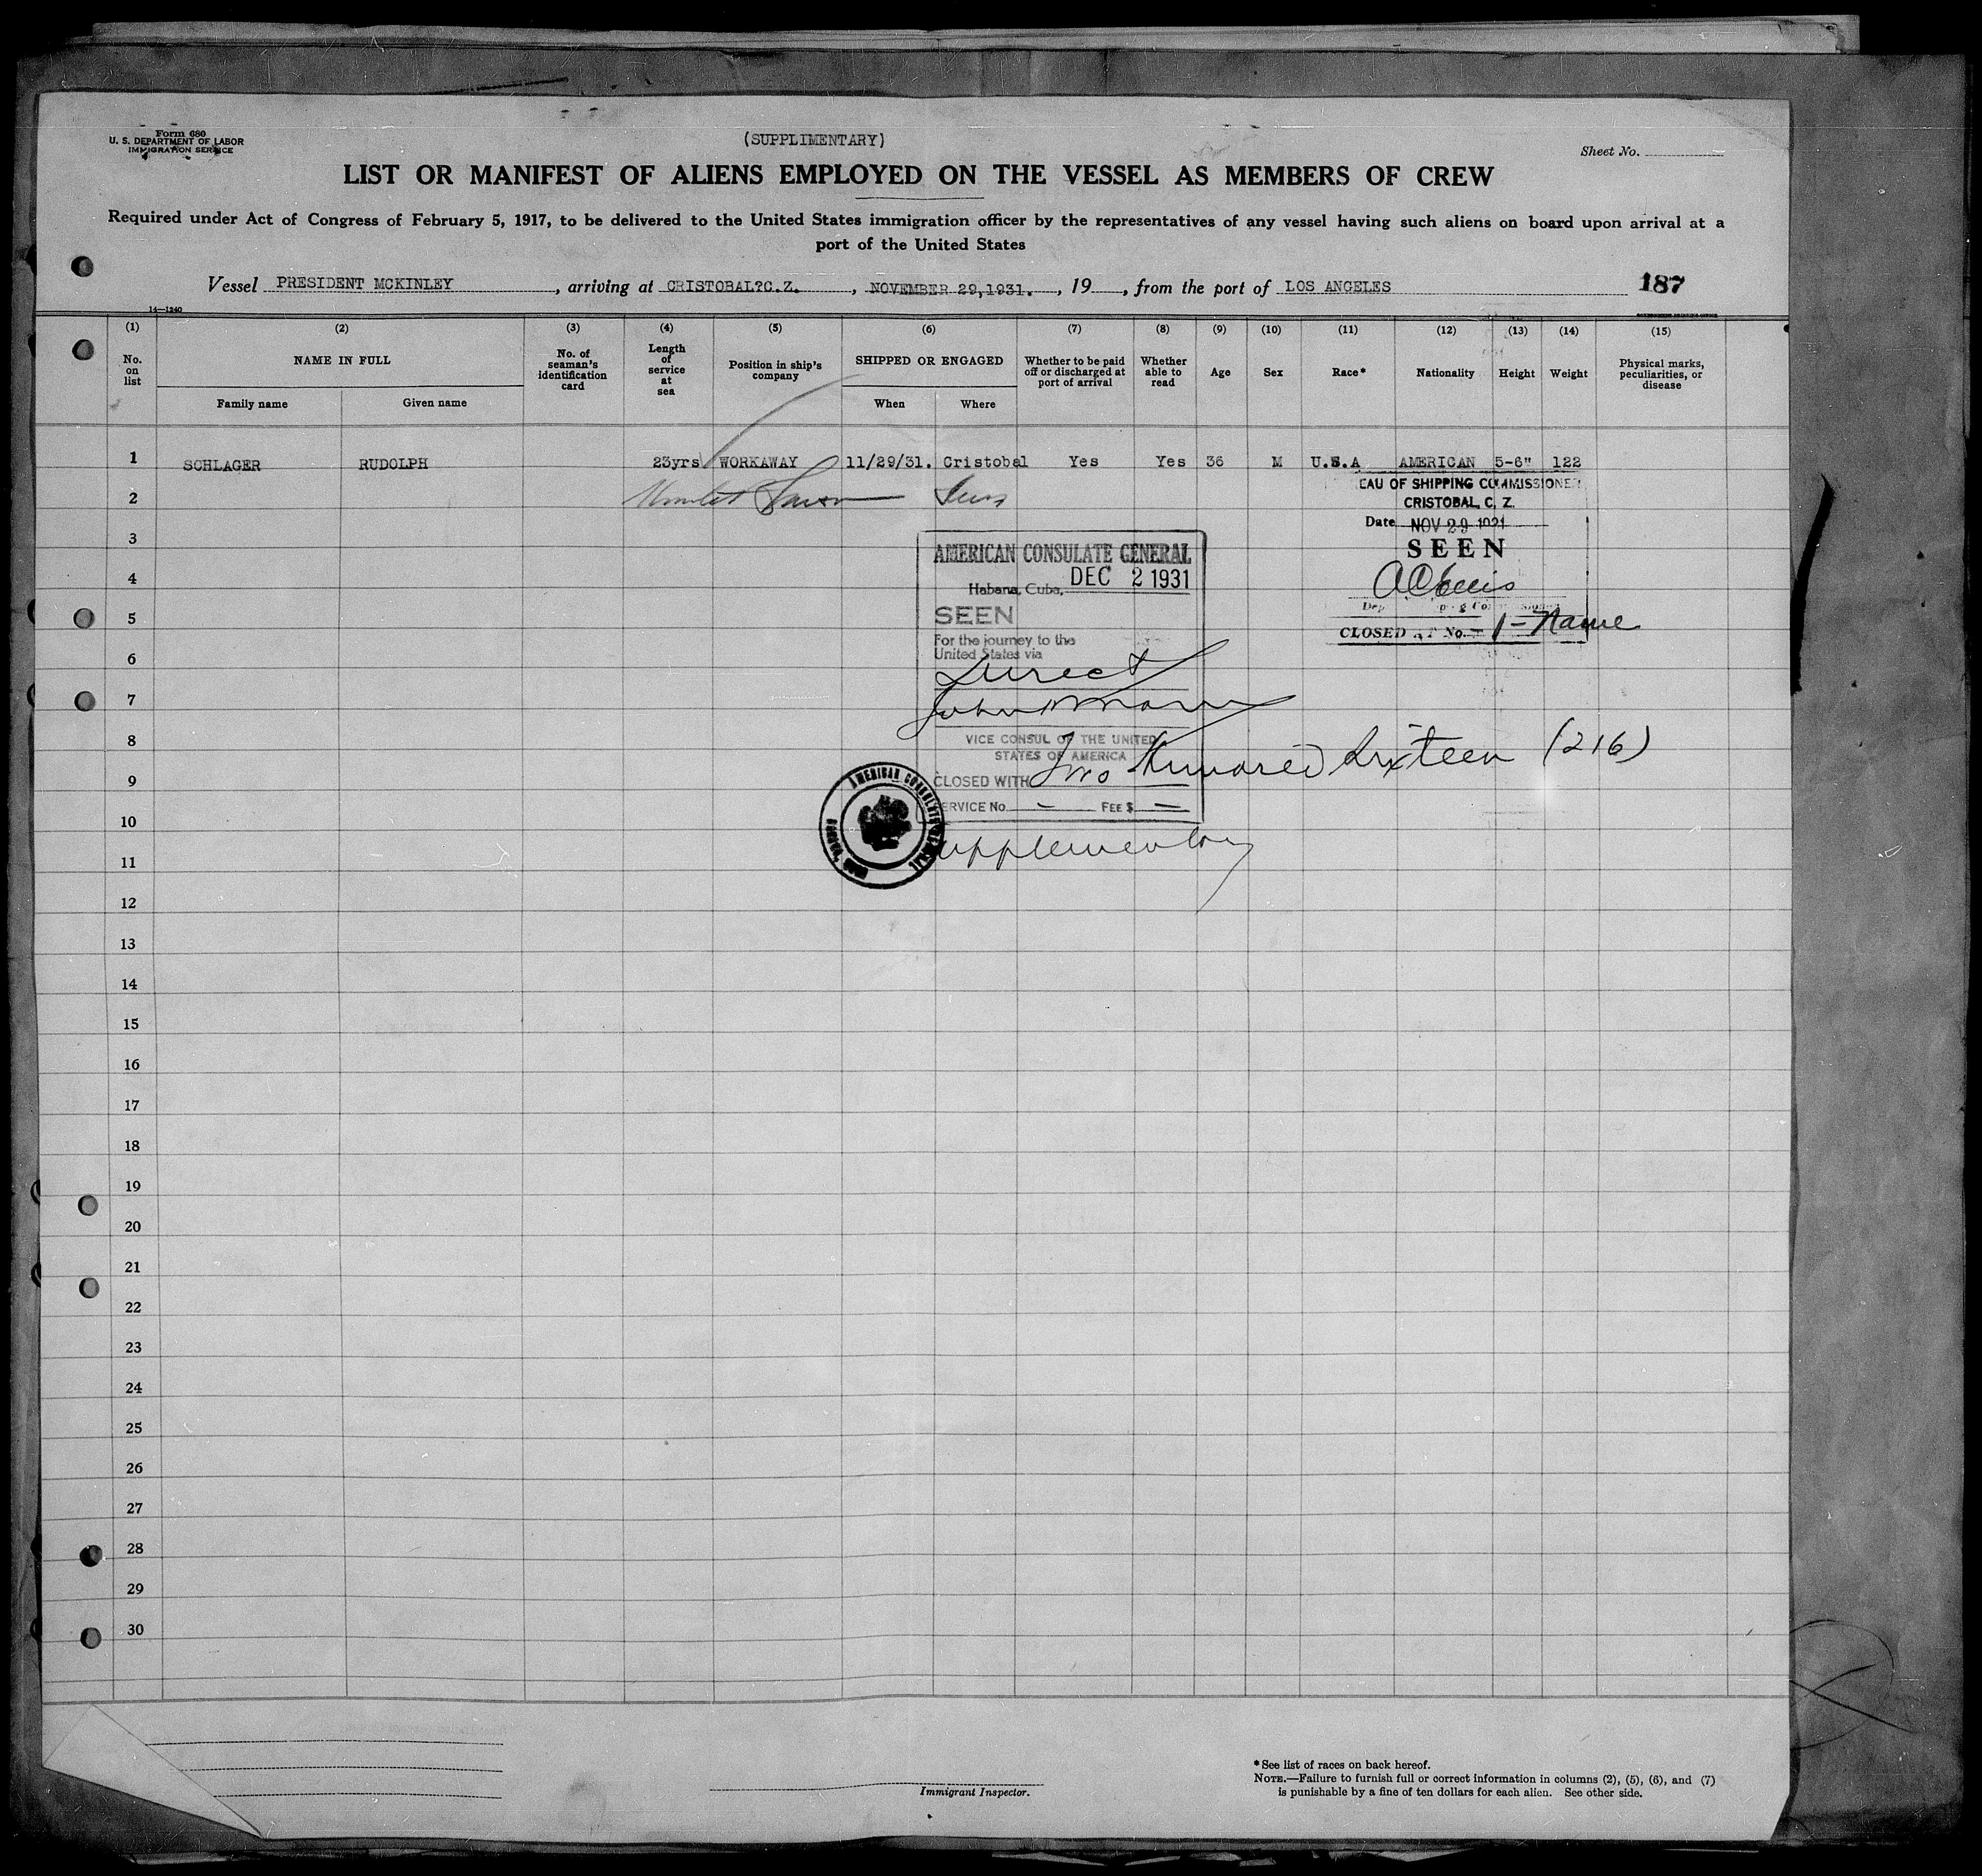 Form 680
U. S. DEPARTMENT OF LABOR
IMMIGRATION SERVICE
(SUPPLIMENTARY)
Sheet No.
LIST OR MANIFEST OF ALIENS EMPLOYED ON THE VESSEL AS MEMBERS OF CREW
Required under Act of Congress of February 5, 1917, to be delivered to the United States immigration officer by the representatives of any vessel having such aliens on board upon arrival at a
port of the United States
Vessel PRESIDENT MCKINLEY, arriving at CRISTOBAL?C.Z., NOVEMBER 29,1931., 19, from the port of LOS ANGELES 187
14—1240
(1) (2) (3) (4) (5) (6) (7) (8) (9) (10) (11) (12) (13) (14) (15)
No. on list NAME IN FULL No. of seaman's identification card Length of service at sea Position in ship's company SHIPPED OR ENGAGED Whether to be paid off or discharged at port of arrival Whether able to read Age Sex Race* Nationality Height Weight Physical marks, peculiarities, or disease
Family name Given name When Where
1 SCHLAGER RUDOLPH 23yrs WORKAWAY 11/29/31. Cristobal Yes Yes 36 M U.S.A AMERICAN 5-6" 122
2
3
4
5
6
7
8
9
10
11
12
13
14
15
16
17
18
19
20
21
22
23
24
25
26
27
28
29
30
EAU OF SHIPPING COMMISSIONER
CRISTOBAL, C. Z.
Date NOV 29 1931
SEEN
CLOSED AT No. - 1 - Name
AMERICAN CONSULATE GENERAL
Habana, Cuba, DEC 2 1931
SEEN
For the journey to the
United States via
Direct
VICE CONSUL OF THE UNITED
STATES OF AMERICA
CLOSED WITH Two Hundred Sixteen (216)
SERVICE No. — FEE $ —
Supplementary
AMERICAN CONSULATE GENERAL
HABANA, CUBA
Immigrant Inspector.
*See list of races on back hereof.
NOTE.—Failure to furnish full or correct information in columns (2), (5), (6), and (7)
is punishable by a fine of ten dollars for each alien. See other side.